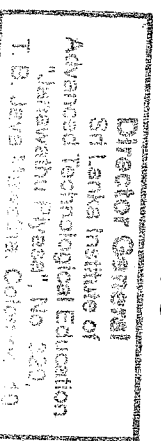 Director General
Sri Lanka Institute of
Advanced Technological Education
No. 320,
T.B. Jaya Mawatha, Colombo 10